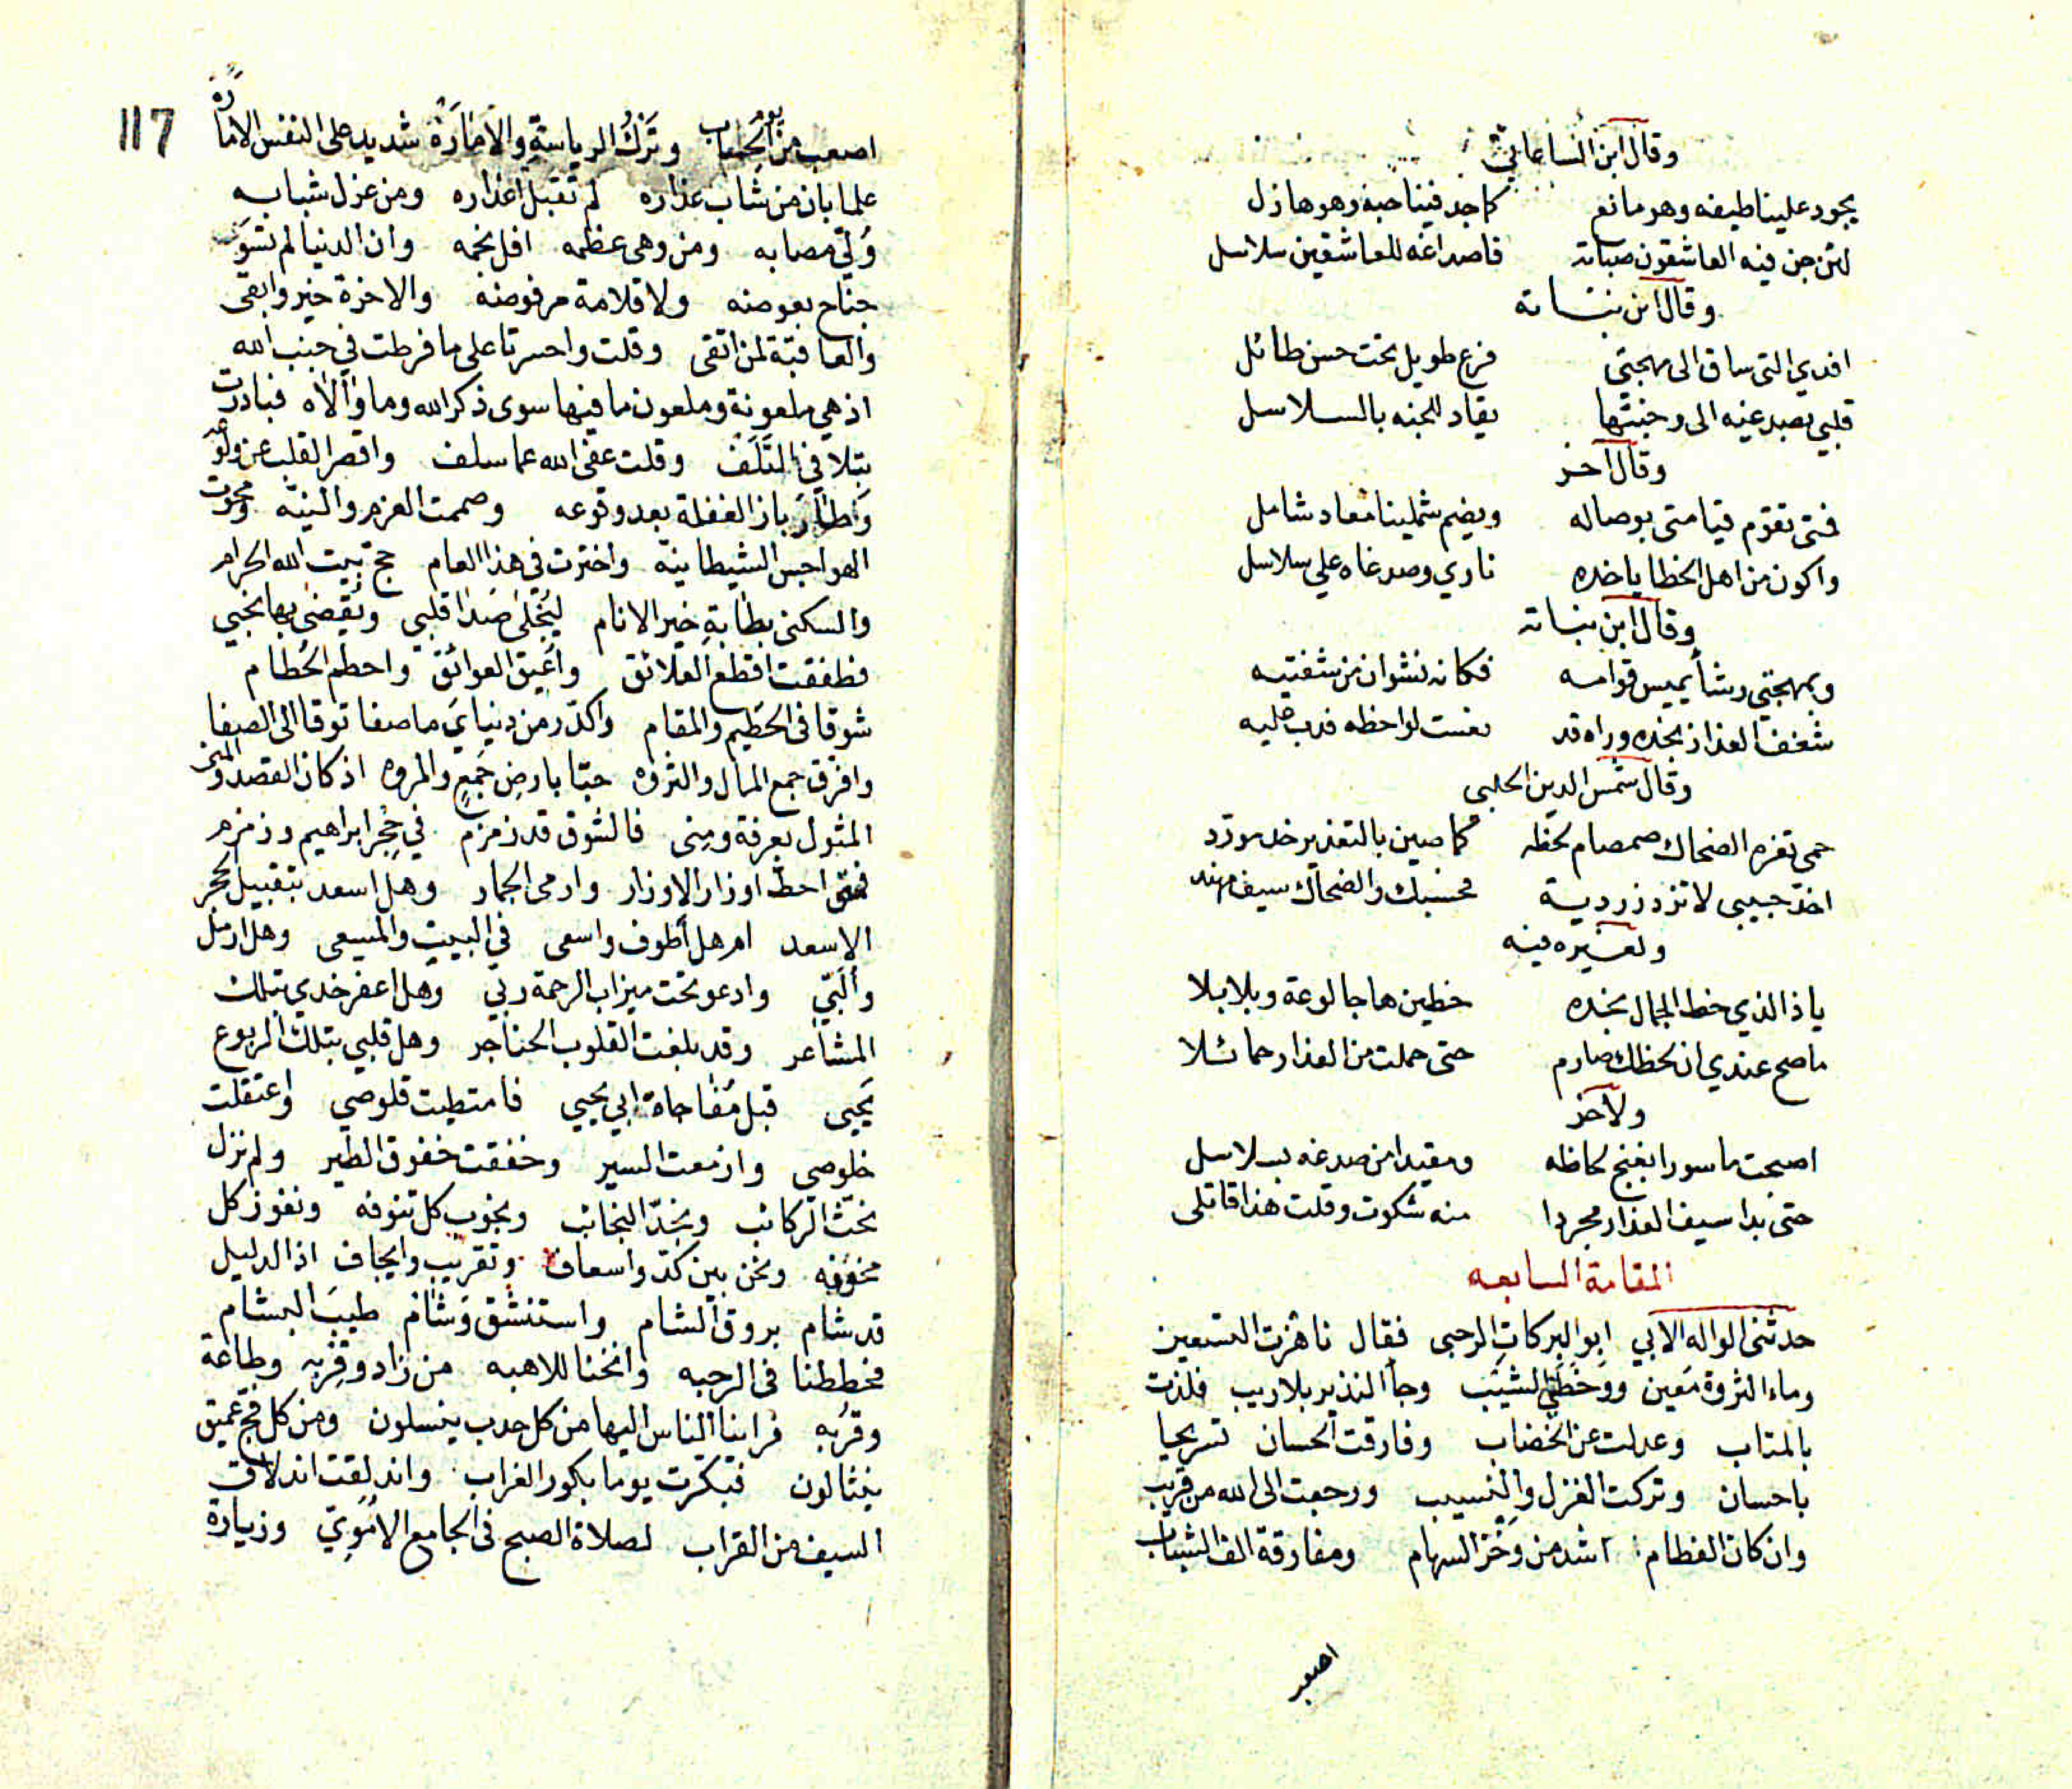 وقال ابن الساعاتي
يجود علينا طيفه وهو مانع كما جد فينا حبه وهو هازل
لئن جن فيه العاشقون صبابة فاصداغه للعاشقين سلاسل
وقال ابن نباتة
افدي التي ساق الى مهجتي فرع طويل تحت حسن طائل
قلبي بصدغيه الى وجنتها يقاد للجنه بالسلاسل
وقال آخر
فمتى تقوم قيامتي بوصاله ويضم شملينا معاد شامل
واكون من اهل الخطايا خده ناري وصدغاه علي سلاسل
وقال ابن نباتة
وبمهجتي رشأ يميس قوامه فكانه نشوان من شفتيه
شغف العذار بخده وراه قد نعست لواحظه فدب عليه
وقال شمس الدين الحلبي
حمى ثغره الضحاك صمصام لحظه كما صين بالتعذير خد مورد
اخذ حبيبي لا تزد زردية فحسبك والضحاك سيف مهند
ولغيره فيه
يا ذا الذي خط الجمال بخده خطين هاجا لوعة وبلابلا
ما صح عندي ان لحظك صارم حتى حملت من العذار حمائلا
ولآخر
اصبحت ماسورا بغنج لحاظه ومقيدا من صدغه بسلاسل
حتى بدا سيف العذار مجردا منه شكوت وقلت هذا قاتلى
المقامة السابعه
حدثنى الواله الابي ابو البركات الرحبى فقال ناهزت التسعين
وماء الثروة معين ووخطني الشيب وجا النذير بلا ريب فلذت
بالمتاب وعدلت عن الخضاب وفارقت الحسان تسريحا
باحسان وتركت الغزل والنسيب ورجعت الى الله من قريب
وان كان الفطام اشد من وخز السهام ومفارقة الف الشباب
اصعب
117
اصعب من يوم الحساب وترك الرياسة والامارة شديد على النفس الامارة
علما بان من شاب عذاره لم تقبل اعذاره ومن عزل شبابه
ولي مصابه ومن وهى عظمه افل نجمه وان الدنيا لم تسو
جناح بعوضه ولا قلامة مرفوضه والاخرة خير وابقى
والعاقبة لمن اتقى وقلت واحسرتا على ما فرطت في جنب الله
اذ هي ملعونة وملعون ما فيها سوى ذكر الله وما والاه فبادرت
بتلافي التلف وقلت عفى الله عما سلف واقصر القلب عن ولوعه
وطار باز الغفلة بعد وقوعه وصممت العزم والنية ومحوت
الهواجس الشيطانية واخترت في هذا العام حج بيت الله الحرام
والسكنى بطابة خير الانام ليجلى صدا قلبى ويقضى بها نحبي
فطفقت اقطع العلائق واعيق العوائق واحطم الحطام
شوقا فى الحطيم والمقام واكدر من دنياي ما صفا توقا الى الصفا
وافرق جمع المال والثروه حبا بارض جمع والمروه اذ كان القصد والمنى
المثول بعرفة ومنى فالشوق قد زمزم في حجر ابراهيم وزمزم
فمتى احط اوزار الاوزار وارمى الجمار وهل اسعد بتقبيل الحجر
الاسعد ام هل اطوف واسعى في البيت والمسعى وهل ارمل
والبي وادعو تحت ميزاب الرحمة ربي وهل اعفر خدي بتلك
المشاعر وقد بلغت القلوب الحناجر وهل قلبي بتلك الربوع
يحيى قبل مفاجاة ابي يحيى فامتطيت قلوصي واعتقلت
خلوصي وازمعت السير وخفقت خفوق الطير ولم نزل
نحث الركائب ونجد النجائب ونجوب كل تنوفه ونفوز كل
مخوفه ونحن بين كد واسعاف وتقريب وايجاف اذا الدليل
قد شام بروق الشام واستنشق وشام طيب البشام
فحططنا فى الرحبه وانخنا للاهبه من زاد وقربه وطاعة
وقربه فراينا الناس اليها من كل حدب ينسلون ومن كل فج عميق
ينثالون فبكرت يوما بكور الغراب واندلقت اندلاق
السيف من القراب لصلاة الصبح فى الجامع الاموي وزيارة